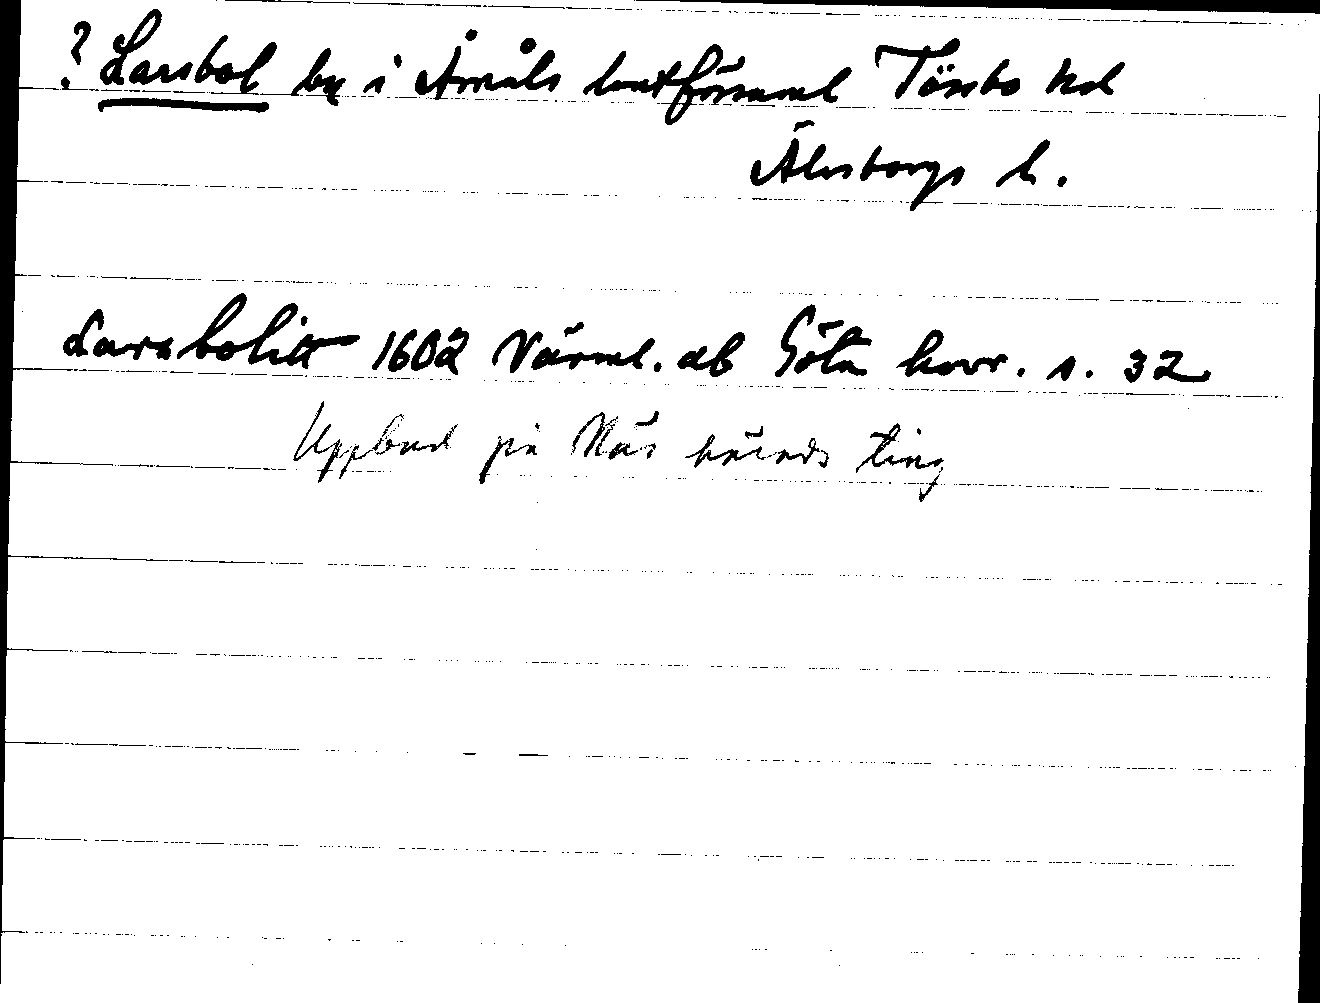 ? Larsbol by i Åmåls lantförsaml Tössbo hd
Älvsborgs l.
Larsbolitt 1602 Värml. db Göta hovr. s. 32
Uppbud på Näs härads ting